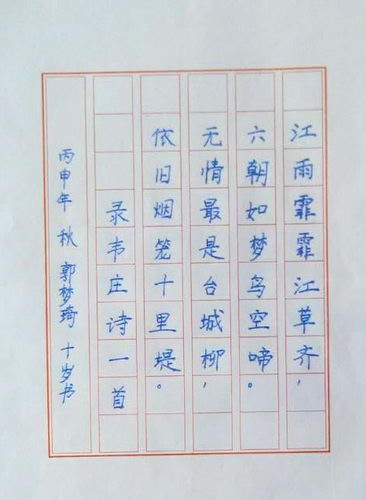 江雨霏霏江草齐，
六朝如梦鸟空啼。
无情最是台城柳，
依旧烟笼十里堤。
录韦庄诗一首
丙申年 秋 郭梦琦 十岁书